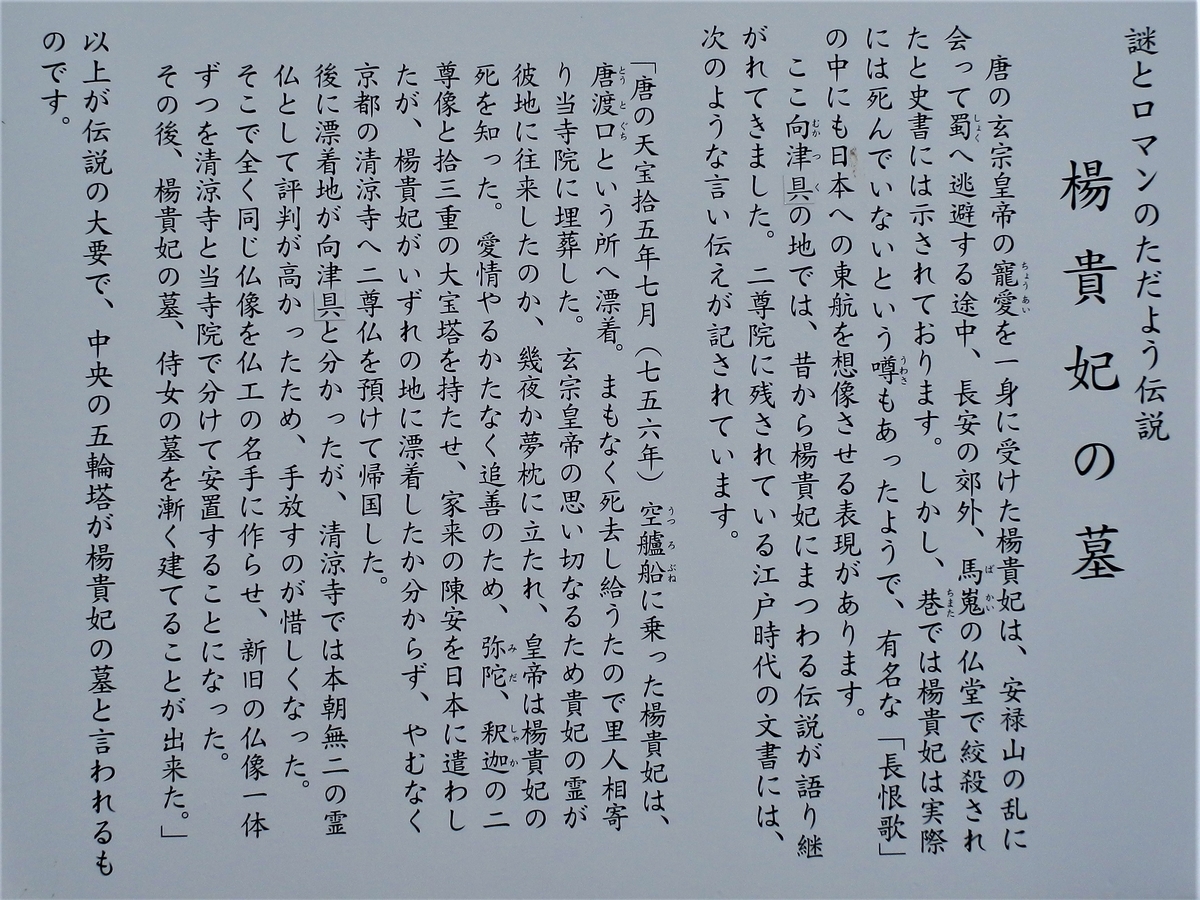 謎とロマンのただよう伝説
楊貴妃の墓
唐の玄宗皇帝の寵愛を一身に受けた楊貴妃は、安禄山の乱に
会って蜀へ逃避する途中、長安の郊外、馬嵬の仏堂で絞殺され
たと史書には示されております。しかし、巷では楊貴妃は実際
には死んでいないという噂もあったようで、有名な「長恨歌」
の中にも日本への東航を想像させる表現があります。
ここ向津具の地では、昔から楊貴妃にまつわる伝説が語り継
がれてきました。二尊院に残されている江戸時代の文書には、
次のような言い伝えが記されています。
「唐の天宝拾五年七月（七五六年）空艫船に乗った楊貴妃は、
唐渡口という所へ漂着。まもなく死去し給うたので里人相寄
り当寺院に埋葬した。玄宗皇帝の思い切なるため貴妃の霊が
彼地に往来したのか、幾夜か夢枕に立たれ、皇帝は楊貴妃の
死を知った。愛情やるかたなく追善のため、弥陀、釈迦の二
尊像と拾三重の大宝塔を持たせ、家来の陳安を日本に遣わし
たが、楊貴妃がいずれの地に漂着したか分からず、やむなく
京都の清涼寺へ二尊仏を預けて帰国した。
後に漂着地が向津具と分かったが、清涼寺では本朝無二の霊
仏として評判が高かったため、手放すのが惜しくなった。
そこで全く同じ仏像を仏工の名手に作らせ、新旧の仏像一体
ずつを清涼寺と当寺院で分けて安置することになった。
その後、楊貴妃の墓、侍女の墓を漸く建てることが出来た。」
以上が伝説の大要で、中央の五輪塔が楊貴妃の墓と言われるも
のです。